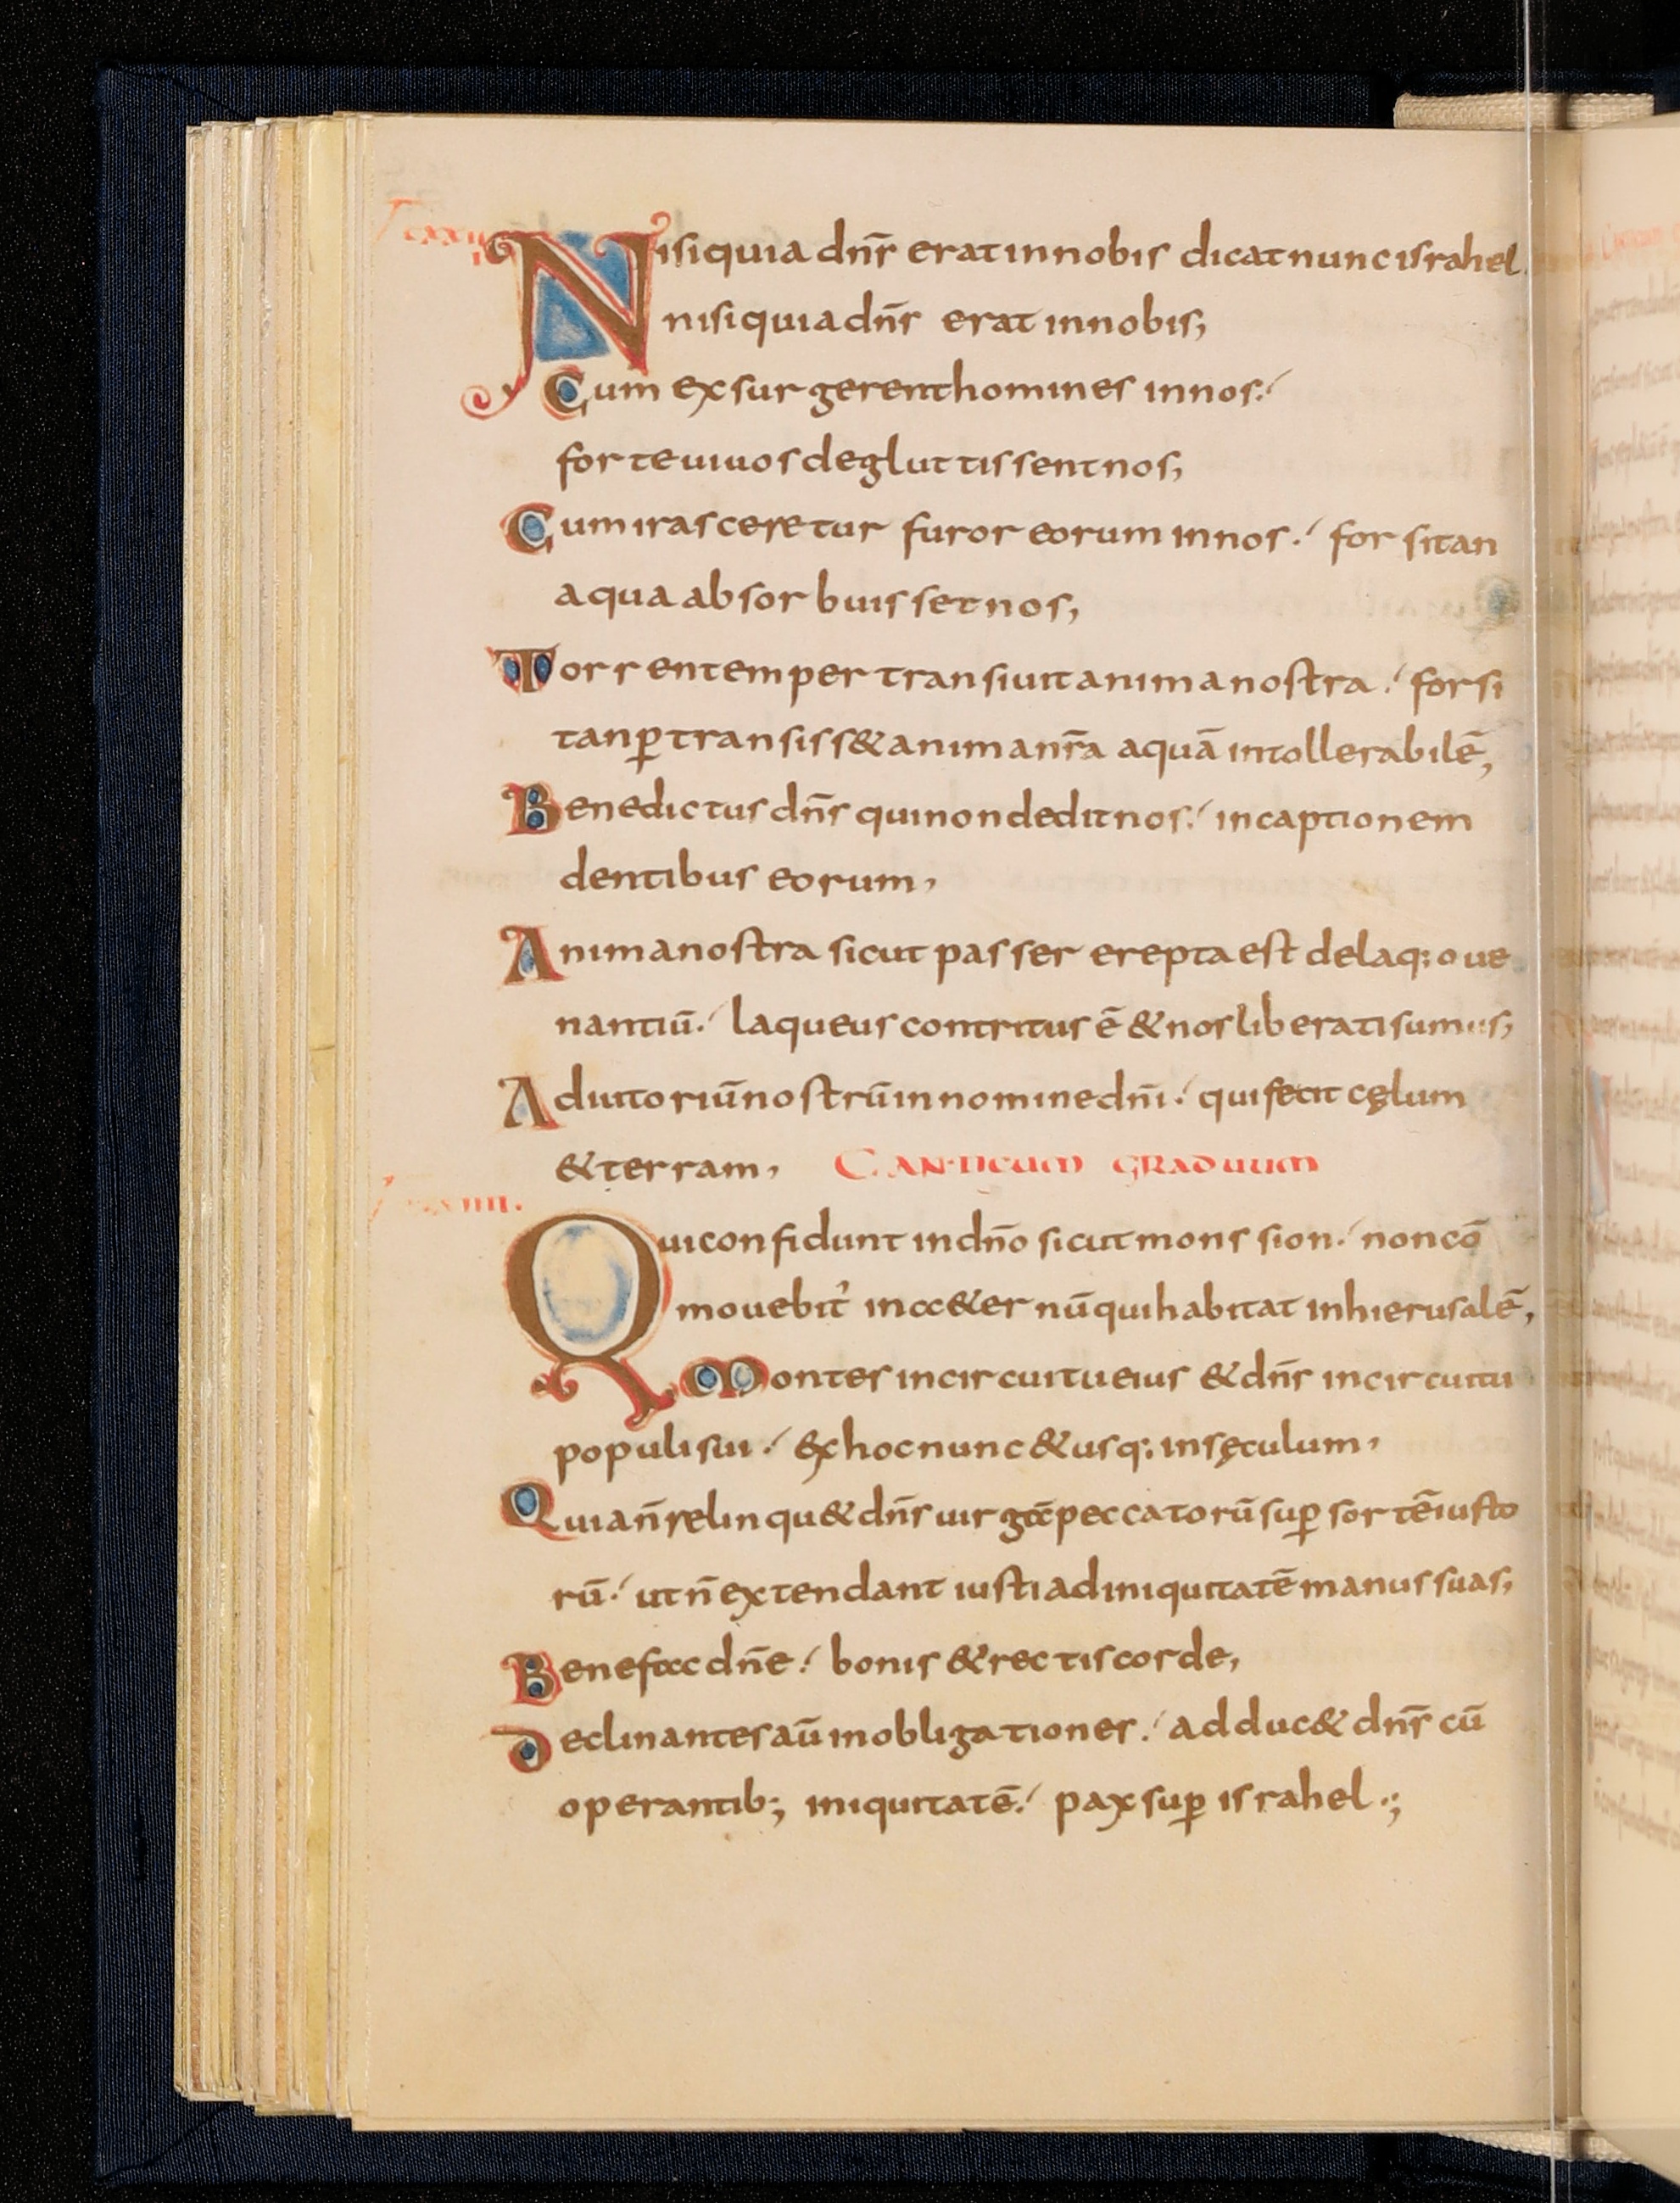 Nisi quia dn̄s erat in nobis dicat nunc israhel.
nisi quia dn̄s erat in nobis;
Cum exsurgerent homines in nos:
forte uiuos degluttissent nos;
Cum irasceretur furor eorum in nos: forsitan
aqua absorbuisset nos;
Torrentem pertransiuit anima nostra: forsi
tan ꝑtransiss& anima nr̄a aquā intollerabilē;
Benedictus dn̄s qui non dedit nos: in captionem
dentibus eorum;
Anima nostra sicut passer erepta est de laq;o ue
nantiū: laqueus contritus ē & nos liberati sumus;
Adiutoriū nostrū in nomine dn̄i: qui fecit cęlum
& terram; CANTICUM GRADUUM
Qui confidunt in dn̄o sicut mons sion: non cō
mouebit᷑ in &ernū qui habitat in hierusalē;
Montes in circuitu eius & dn̄s in circuitu
populi sui: ex hoc nunc & usq; in sęculum;
Quia n̄ relinqu& dn̄s uirgā peccatorū suꝑ sortē iusto
rū: ut n̄ extendant iusti ad iniquitatē manus suas;
Benefac dn̄e: bonis & rectis corde;
Declinantes aū in obligationes: adduc& dn̄s cū
operantib; iniquitatē: pax suꝑ israhel;